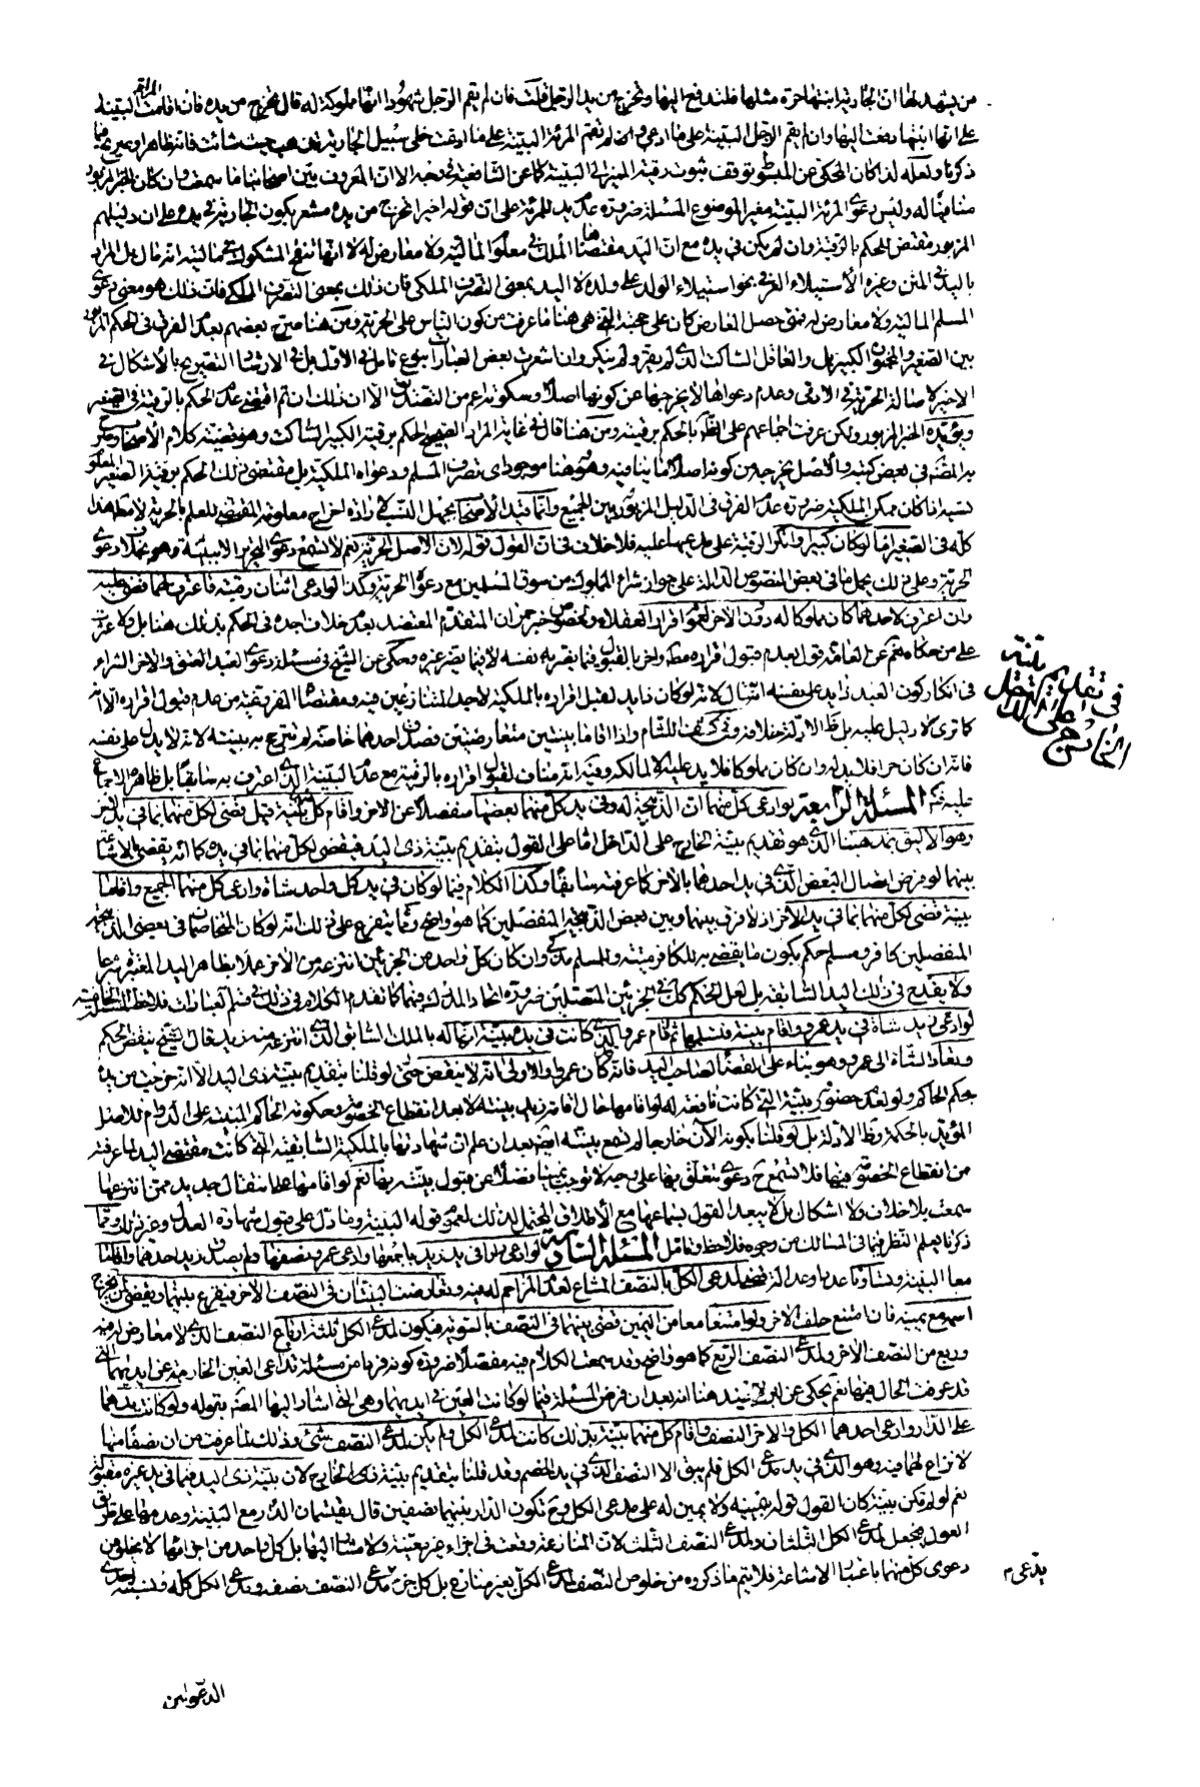 من يشهد لها ان الجارية ابنتها حرة مثلها فلتدفع اليها وتخرج من يد الرجل قلت فان لم يقم الرجل شهودا انها مملوكة له قال تخرج من يده فان اقامت المراة البينة
على انها ابنتها دفعت اليها وان لم يقم الرجل البينة على ما ادعى ولم تقم المرئة البينة على ما ادعت خلى سبيل الجارية تذهب حيث شائت فانه ظاهر او صريح فيما
ذكرنا ولعله لذا كان المحكى عن المبسوط توقف ثبوت رقية المميز الى البينة كما عن الشافعية فى وجه الا ان المعروف بين اصحابنا ما سمعت وان كان الخبر المزبور
منافيا له وليس دعوى المرئة البينة مغير الموضوع المسئلة ضرورة عدم يد للمرئة على ان قوله اخيرا تخرج من يده مشعر بكون الجارية فى يده على ان دليلهم
المزبور مقتض للحكم بالرقية وان لم يكن فى يده مع ان اليد مقتضاها الملك فى معلوم المالية ولا معارض له لا انها تنقح المشكوك
باليد فى المتن وغيره الاستيلاء العرفى نحو استيلاء الوالد على ولده لا اليد بمعنى التصرف الملكى فان ذلك بمعنى التصرف الملكى فان ذلك هو معنى دعوى
المسلم المالية ولا معارض له فمتى حصل المعارض كان على حجيته التى هى هنا ما عرفت من كون الناس على الحرية ومن هنا صرح بعضهم بعدم الفرق فى الحكم المزبور
بين الصغير والمجنون الكبير بل والعاقل الساكت الذى لم يقر ولم ينكر وان اشعرت بعض العبارات بنوع تامل فى الاول بل فى الارشاد التصريح بالاشكال فى
الاخير لاصالة الحرية فى الادمى وعدم دعواها لا يخرجها عن كونها اصلا وسكوته اعم من التصديق الا ان ذلك ان تم اقتضى عدم الحكم بالرقية فى الصغير
ويؤيده الخبر المزبور ولكن عرفت اجماعهم على الظاهر بالحكم برقيته ومن هنا قال فى غاية المراد الصحيح الحكم برقية الكبير الساكت وهو قضية كلام الاصحاب وصرح
به المصنف فى بعض كتبه والاصل يخرجه من كونه اصلا ما ينافيه وهو هنا موجود اى تصرف المسلم ودعواه الملكية بل مقتضى ذلك الحكم برقية الصغير المعلوم
نسبه اذا كان ممكن الملكية ضرورة عدم الفرق فى الدليل المزبور بين الجميع وانما قيد الاصحاب بمجهول النسب فى ارادة اخراج معلومه المقتضى للعلم بالحرية لا مطلقا هذا
كله فى الصغير اما لو كان كبيرا وانكر الرقية على مدعيها عليه فلا خلاف فى ان القول قوله لان الاصل الحرية نعم لا تسمع دعوى الحرية الا ببينة وهو
الحرية وعلى ذلك يحمل ما فى بعض النصوص الدالة على جواز شراء المملوك من سوق المسلمين مع دعوى الحرية وكذا لو ادعى اثنان رقيته فاعترف لهما قضى عليه
وان اعترف لاحدهما كان مملوكا له دون الاخر لعموم اقرار العقلاء وخصوص خبر حمران المتقدم المعتضد بعدم خلاف اجده فى الحكم بذلك هنا بل ولا
على من حكاه نعم عن العامة قول بعدم قبول اقراره مطلقا واخر بالقبول فيما يضر به نفسه لا فيما يضر غيره وحكى عن الشيخ فى مسئلة دعوى العبد العتق والاخر الشراء
فى انكار كون العبد ذا يد على نفسه
كما ترى لا دليل عليه بل ظاهر الادلة خلافه وفى كشف اللثام واذا اقاما بينتين متعارضتين فصدق احدهما خاصة لم تترجح به بينته لانه لا يد له على نفسه
فانه ان كان حرا فلا يد له وان كان مملوكا فلا يد عليه الا لمالكه وفيه انه مناف لقبول اقراره بالرقية مع عدم البينة الذى اعترف به سابقا بل ظاهره الاجماع
عليه فتدبر المسئلة الرابعة لو ادعى كل منهما ان الذبيحة له وفى يد كل منهما بعضها منفصلا عن الاخر واقام كل بينة قيل قضى لكل منهما بما فى يد الاخر
وهو الاليق بمذهبنا الذى هو تقديم بينة الخارج على الداخل اما على القول بتقديم بينة ذى اليد فيقضى لكل منهما بما فى يده كما انه يقضى بالاشاعة
بينهما لو فرض اتصال البعض الذى فى يد احدهما بالاخر كما عرفته سابقا وكذا الكلام فيما لو كان فى يد كل واحد شاة وادعى كل منهما الجميع واقاما
بينة قضى لكل منهما بما فى يد الاخر اذ لا فرق بينهما وبين بعض الذبيحة المنفصلين كما هو واضح ومما يتفرع على ذلك انه لو كان المتخاصمان فى بعضى الذبيحة
المنفصلين كافر ومسلم حكم بكون ما يقضى به للكافر ميتة وللمسلم مذكى وان كان كل واحد من الجزئين انتزعه من الاخر عملا بظاهر اليد المعتبرة شرعا
ولا يقدح فى ذلك اليد السابقة بل لعل الحكم كذلك فى الجزئين المتصلين ضرورة اتحاد المدرك فيهما كما تقدم الكلام فى ذلك فى قسم العبادات فلاحظ المسئلة الخامسة
لو ادعى زيد شاة فى يد عمرو واقام بينة فتسلمها ثم اقام عمرو الذى كانت فى يده بينة انها له بالملك السابق الذى انتزعه منه زيد قال الشيخ ينقض الحكم
وتعاد الشاة الى عمرو وهو بناء على القضاء لصاحب اليد فانه كان عمروا والاولى انه لا ينقض حتى لو قلنا بتقديم بينة ذى اليد الا انه خرجت من يده
بحكم الحاكم ولو لعدم حضور بينته التى كانت نافعة له لو اقامها حال اقامة زيد بينته لا بعد انقطاع الخصومة وحكومة الحاكم المبنية على الدوام للاصل
المؤيد بالحكمة وظاهر الادلة بل لو قلنا بكونه الآن خارجا لم تسمع بينته ايضا بعد ان علم ان شهادتها بالملكية السابقة التى كانت مقتضى اليد لما عرفته
من انقطاع الخصومة فيها فلا تسمع ح دعوى تتعلق بها على وجه لا توجب يمينا فضلا عن قبول بينته بها نعم لو اقامها على انتقال جديد ممن انتزعها
سمعت بلا خلاف ولا اشكال بل لا يبعد القول بسماعها مع الاطلاق المحتمل لذلك لعموم قوله البينة وما دل على قبول شهادة العدل وغير ذلك ومما
ذكرنا يعلم النظر فيما فى المسالك من وجوه فلاحظ وتامل المسئلة السادسة لو ادعى دارا فى يد زيد باجمعها وادعى عمرو نصفها ولم يصدق زيد احدهما واقاما
معا البينة وتساوتا عددا وعدالة قضى لمدعى الكل بالنصف المشاع لعدم المزاحم له فيه وتعارضت البينتان فى النصف الاخر فيقرع بينهما ويقضى لمن يخرج
اسمه مع يمينه فان امتنع حلف الاخر ولو امتنعا معا من اليمين قضى بينهما فى النصف بالسوية فيكون لمدعى الكل ثلثة ارباع النصف الذى لا معارض له فيه
وربع من النصف الاخر ولمدعى النصف الربع كما هو واضح وقد سمعت الكلام فيه مفصلا ضرورة كونه فردا من مسئلة تداعى العين الخارجة عن ايديهما التى
قد عرفت الحال فيها نعم يحكى عن ابن الجنيد هنا انه بعد ان فرض المسئلة فيما لو كانت العين فى ايديهما وهى التى اشار اليها المصنف بقوله ولو كانت يدهما
على الدار وادعى احدهما الكل والاخر النصف واقام كل منهما بينة بذلك كانت لمدعى الكل ولم يكن لمدعى النصف شئ وذلك لما عرفت من ان نصفا منها
لا نزاع لهما فيه وهو الذى فى يد مدعى الكل فلم يبق الا النصف الذى فى يد الخصم وقد قلنا بتقديم بينة ذلك الخارج لان بينة ذى اليد فيما فى يد غيره مقبولة
نعم لو لم تكن بينة كان القول قوله بيمينه ولا يمين له على مدعى الكل وح تكون الدار بينهما نصفين قال يقتسمان الدار مع البينة وعدمها على طريق
العول فيجعل لمدعى الكل الثلثان ولمدعى النصف الثلث لان المنازعة وقعت فى اجزاء غير معينة ولا مشار اليها بل كل واحد من اجزائها لا يخلو من
دعوى كل منهما باعتبار الاشاعة فلا يتم ما ذكروه من خلوص النصف لمدعى الكل بغير منازع بل كل جزء يدعى مدعى النصف نصفه ومدعى الكل كله ونسبة احدى
فى تقديم بينة
الخارج على الداخل
يدعى م
الدعوين